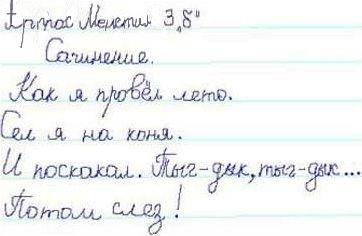 Артас Менетил 3 „Б“
Сочинение.
Как я провёл лето.
Сел я на коня.
И поскакал. Тыг-дык, тыг-дык...
Потом слез!